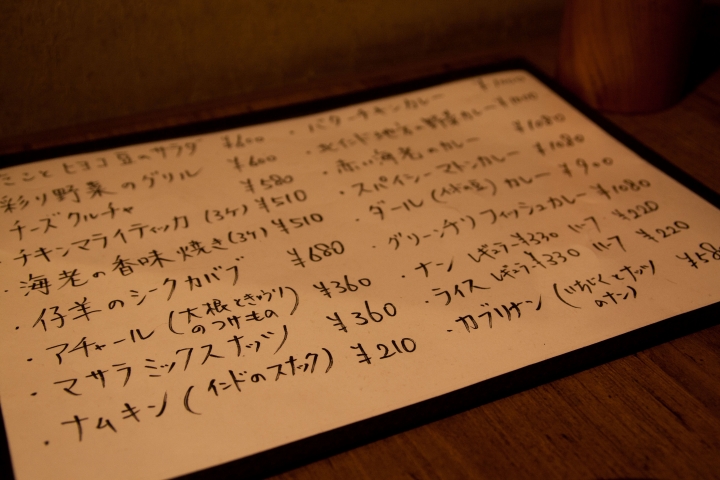 ヒヨコ豆のサラダ ¥600
彩り野菜のグリル ¥600
チーズクルチャ ¥580
・チキンマライティッカ (3ケ) ¥510
・海老の香味焼き(3ケ) ¥510
・仔羊のシークカバブ ¥680
・アチャール (大根ときゅうり
のつけもの) ¥360
・マサラミックスナッツ ¥360
・ナムキン (インドのスナック) ¥210
・バターチキンカレー
・北インド地方の野菜カレー
・赤い海老のカレー ¥1080
・スパイシーマトンカレー ¥1080
・ダール (インドの豆) カレー ¥900
・グリーンチリフィッシュカレー ¥1080
・ナン レギュラー¥330 ハーフ ¥220
・ライス レギュラー¥330 ハーフ ¥220
・カブリナン (いちじくとナッツ
のナン)